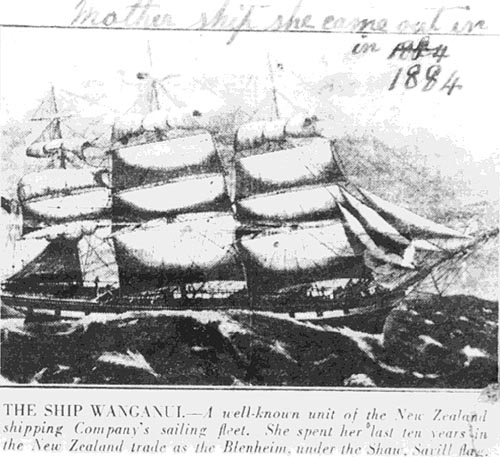 Mother ship she came out in
in 1884
1884
THE SHIP WANGANUI.—A well-known unit of the New Zealand
shipping Company's sailing fleet. She spent her last ten years in
the New Zealand trade as the Blenheim, under the Shaw, Savill flag.